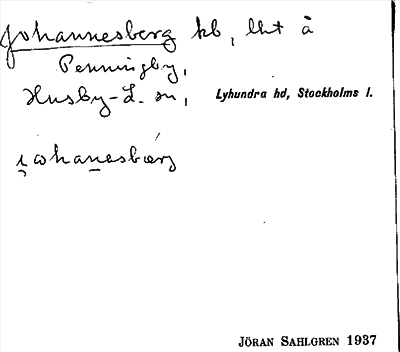 Johannesberg hb, lht å
Penningby,
Husby-L. sn, Lyhundra hd, Stockholms l.
i̯ohan̲esbærg
JÖRAN SAHLGREN 1937